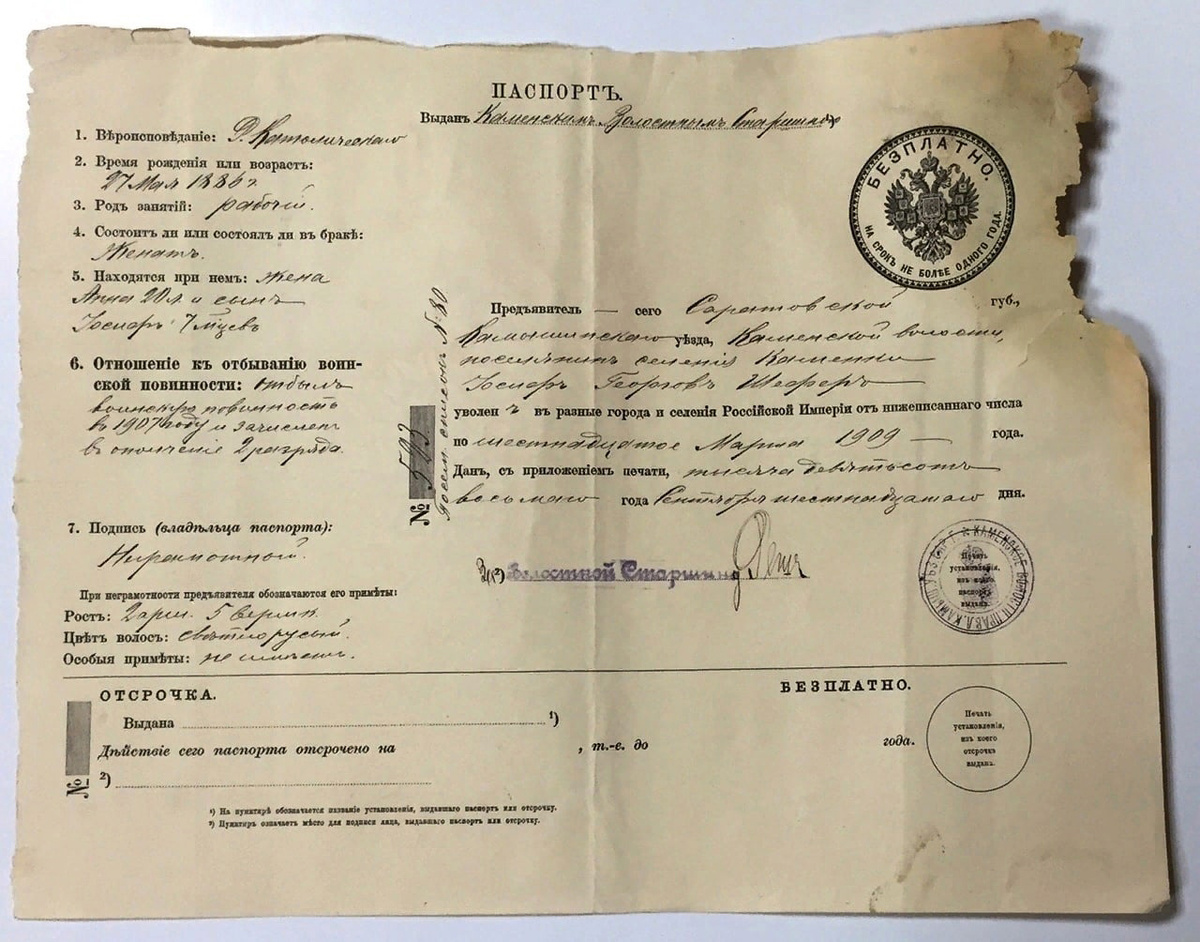 ПАСПОРТЪ.
Выданъ Каменскимъ Волостнымъ Старшиною
БЕЗПЛАТНО.
НА СРОКЪ НЕ БОЛѢЕ ОДНОГО ГОДА.
1. Вѣроисповѣданіе: Р. Католическаго
2. Время рожденія или возрастъ:
27 Мая 1886 г.
3. Родъ занятій: рабочій.
4. Состоитъ ли или состоялъ ли въ бракѣ:
Женатъ.
5. Находятся при немъ: жена
Анна 20 л. и сынъ
Госпаръ 7 мѣсяц
6. Отношеніе къ отбыванію воин-
ской повинности: отбылъ
воинскую повинность
въ 1907 году и зачисленъ
въ ополченіе 2 разряда.
7. Подпись (владѣльца паспорта):
Неграмотный.
При неграмотности предъявителя обозначаются его примѣты:
Ростъ: 2 арш. 5 вершк.
Цвѣтъ волосъ: свѣтлорусый.
Особыя примѣты: не имѣетъ.
№ 593
Посем. списокъ № 80
Предъявитель — сего Саратовской губ.,
Камышинскаго уѣзда, Каменской волости,
поселянинъ селенія Каменки
Госпаръ Георговъ Шеферъ
уволенъ въ разные города и селенія Россійской Имперіи отъ нижеписаннаго числа
по шестнадцатое Марта 1909 — года.
Данъ, съ приложеніемъ печати, тысяча девятьсотъ
восьмаго года Сентября шестнадцатаго дня.
Волостной Старшина
Печать
установленія,
изъ коего
паспортъ
выданъ.
ОТСРОЧКА.
БЕЗПЛАТНО.
Выдана ¹)
Дѣйствіе сего паспорта отсрочено на , т.-е. до года.
№ ²)
Печать
установленія,
изъ коего
отсрочка
выдана.
¹) На пунктирѣ обозначается названіе установленія, выдавшаго паспортъ или отсрочку.
²) Пунктиръ означаетъ мѣсто для подписи лица, выдавшаго паспортъ или отсрочку.